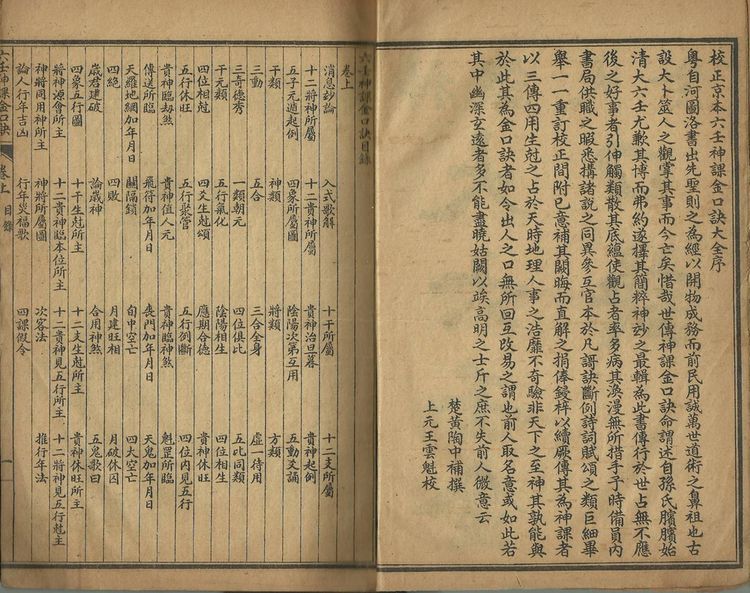 校正京本六壬神課金口訣大全序
粵自河圖洛書出先聖則之為經以開物成務而前民用誠萬世道術之鼻祖也古
設大卜筮人之觀掌其事而今亡矣惜哉世傳神課金口訣命謂述自孫氏臏臏始
清大六壬尤歎其博而弗約遂擇其簡粹神妙之最輯為此書傳行於世占無不應
後之好事者引伸觸類散其底蘊使觀占者率多病其渙漫無所措手予時備員內
書局供職之暇悉構諸說之同異參互官本於凡謌訣斷例詩詞賦頌之類巨細畢
舉一一重訂校正間附已意補其闕晦而直解之捐俸鋟梓以續厥傳其為神課者
以三傳四用生尅之占於天時地理人事之浩靡不奇驗非天下之至神其孰能與
於此其為金口訣者如令出人之口無所回互改易之謂也前人取名意或如此若
其中幽深玄遠者多不能盡曉姑闕以竢高明之士斤之庶不失前人微意云
楚黃陶中補撰
上元王雲魁校
六壬神課金口訣目錄
卷上
消息妙論 入式歌解 十干所屬 十二支所屬
十二將神所屬 十二貴神所屬 貴神治旦暮 貴神起例
五子元遁起例 四象所屬 陰陽次第互用 五動爻誦
干類 神類 將類 方類
三動 五合 三合全身 虛一待用
三奇德秀 一類朝元 四位俱比 五比同類
干元類 五行氣化 陰陽相生 四位相生
四位相尅 四爻生尅頌 應期合德 貴神休旺
五行休旺 五行聚管 五行例斷 四位內見五行
貴神臨劫煞 貴神值人元 貴神臨神煞 魁罡所臨
傳送所臨 飛符加年月日 喪門加年月日 天鬼加年月日
天羅地網加年月日 關隔鎖 旬中空亡 四大空亡
四絕 四敗 月建旺相 月破休囚
歲君建破 論歲神 合用神煞 五鬼歌曰
四象五行圖 十干生尅所主 十二支生尅所主 貴神休旺所主
將神源會所主 十二貴神臨本位所主 十二貴神見五行所主 十二將神見五行尅主
神將同用神所主 神將所屬圖 次客法 推行年法
論人行年吉凶 行年災福歌 四課假令
六壬神課金口訣 卷上 目錄 一